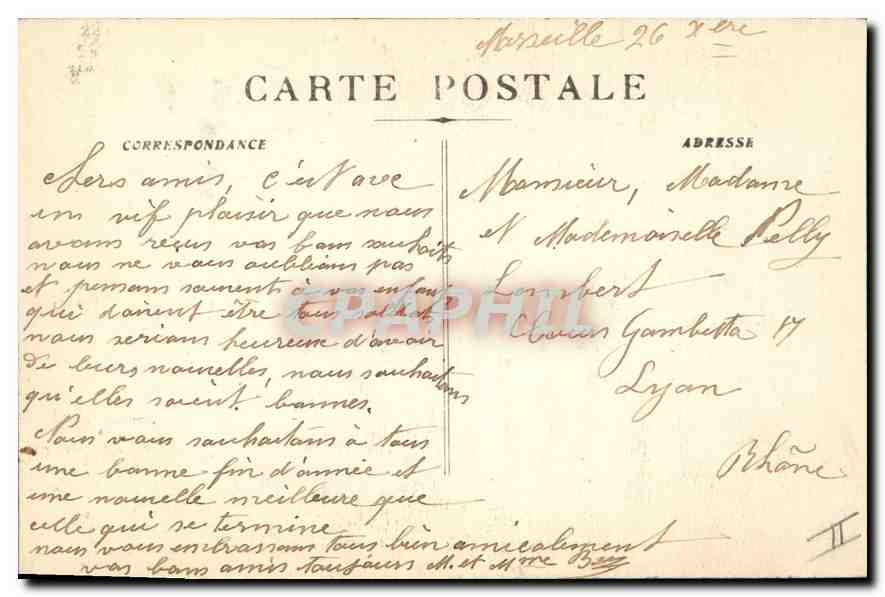 Marseille 26 Xbre
CARTE POSTALE
CORRESPONDANCE
Chers amis, c'est avec
un vif plaisir que nous
avons reçus vos bons souhaits
nous ne vous oublions pas
et pensons souvent à vos enfants
qui doivent être tous soldat
nous serions heureux d'avoir
de leurs nouvelles, nous souhaitons
qu'elles soient bonnes.
Nous vous souhaitons à tous
une bonne fin d'année et
une nouvelle meilleure que
celle qui se termine
nous vous embrassons tous bien amicalement
vos bons amis toujours M. et Mme
ADRESSE
Monsieur, Madame
et Mademoiselle Pelly
Lambert
Cours Gambetta 17
Lyon
Rhône
II
CPAPHIL